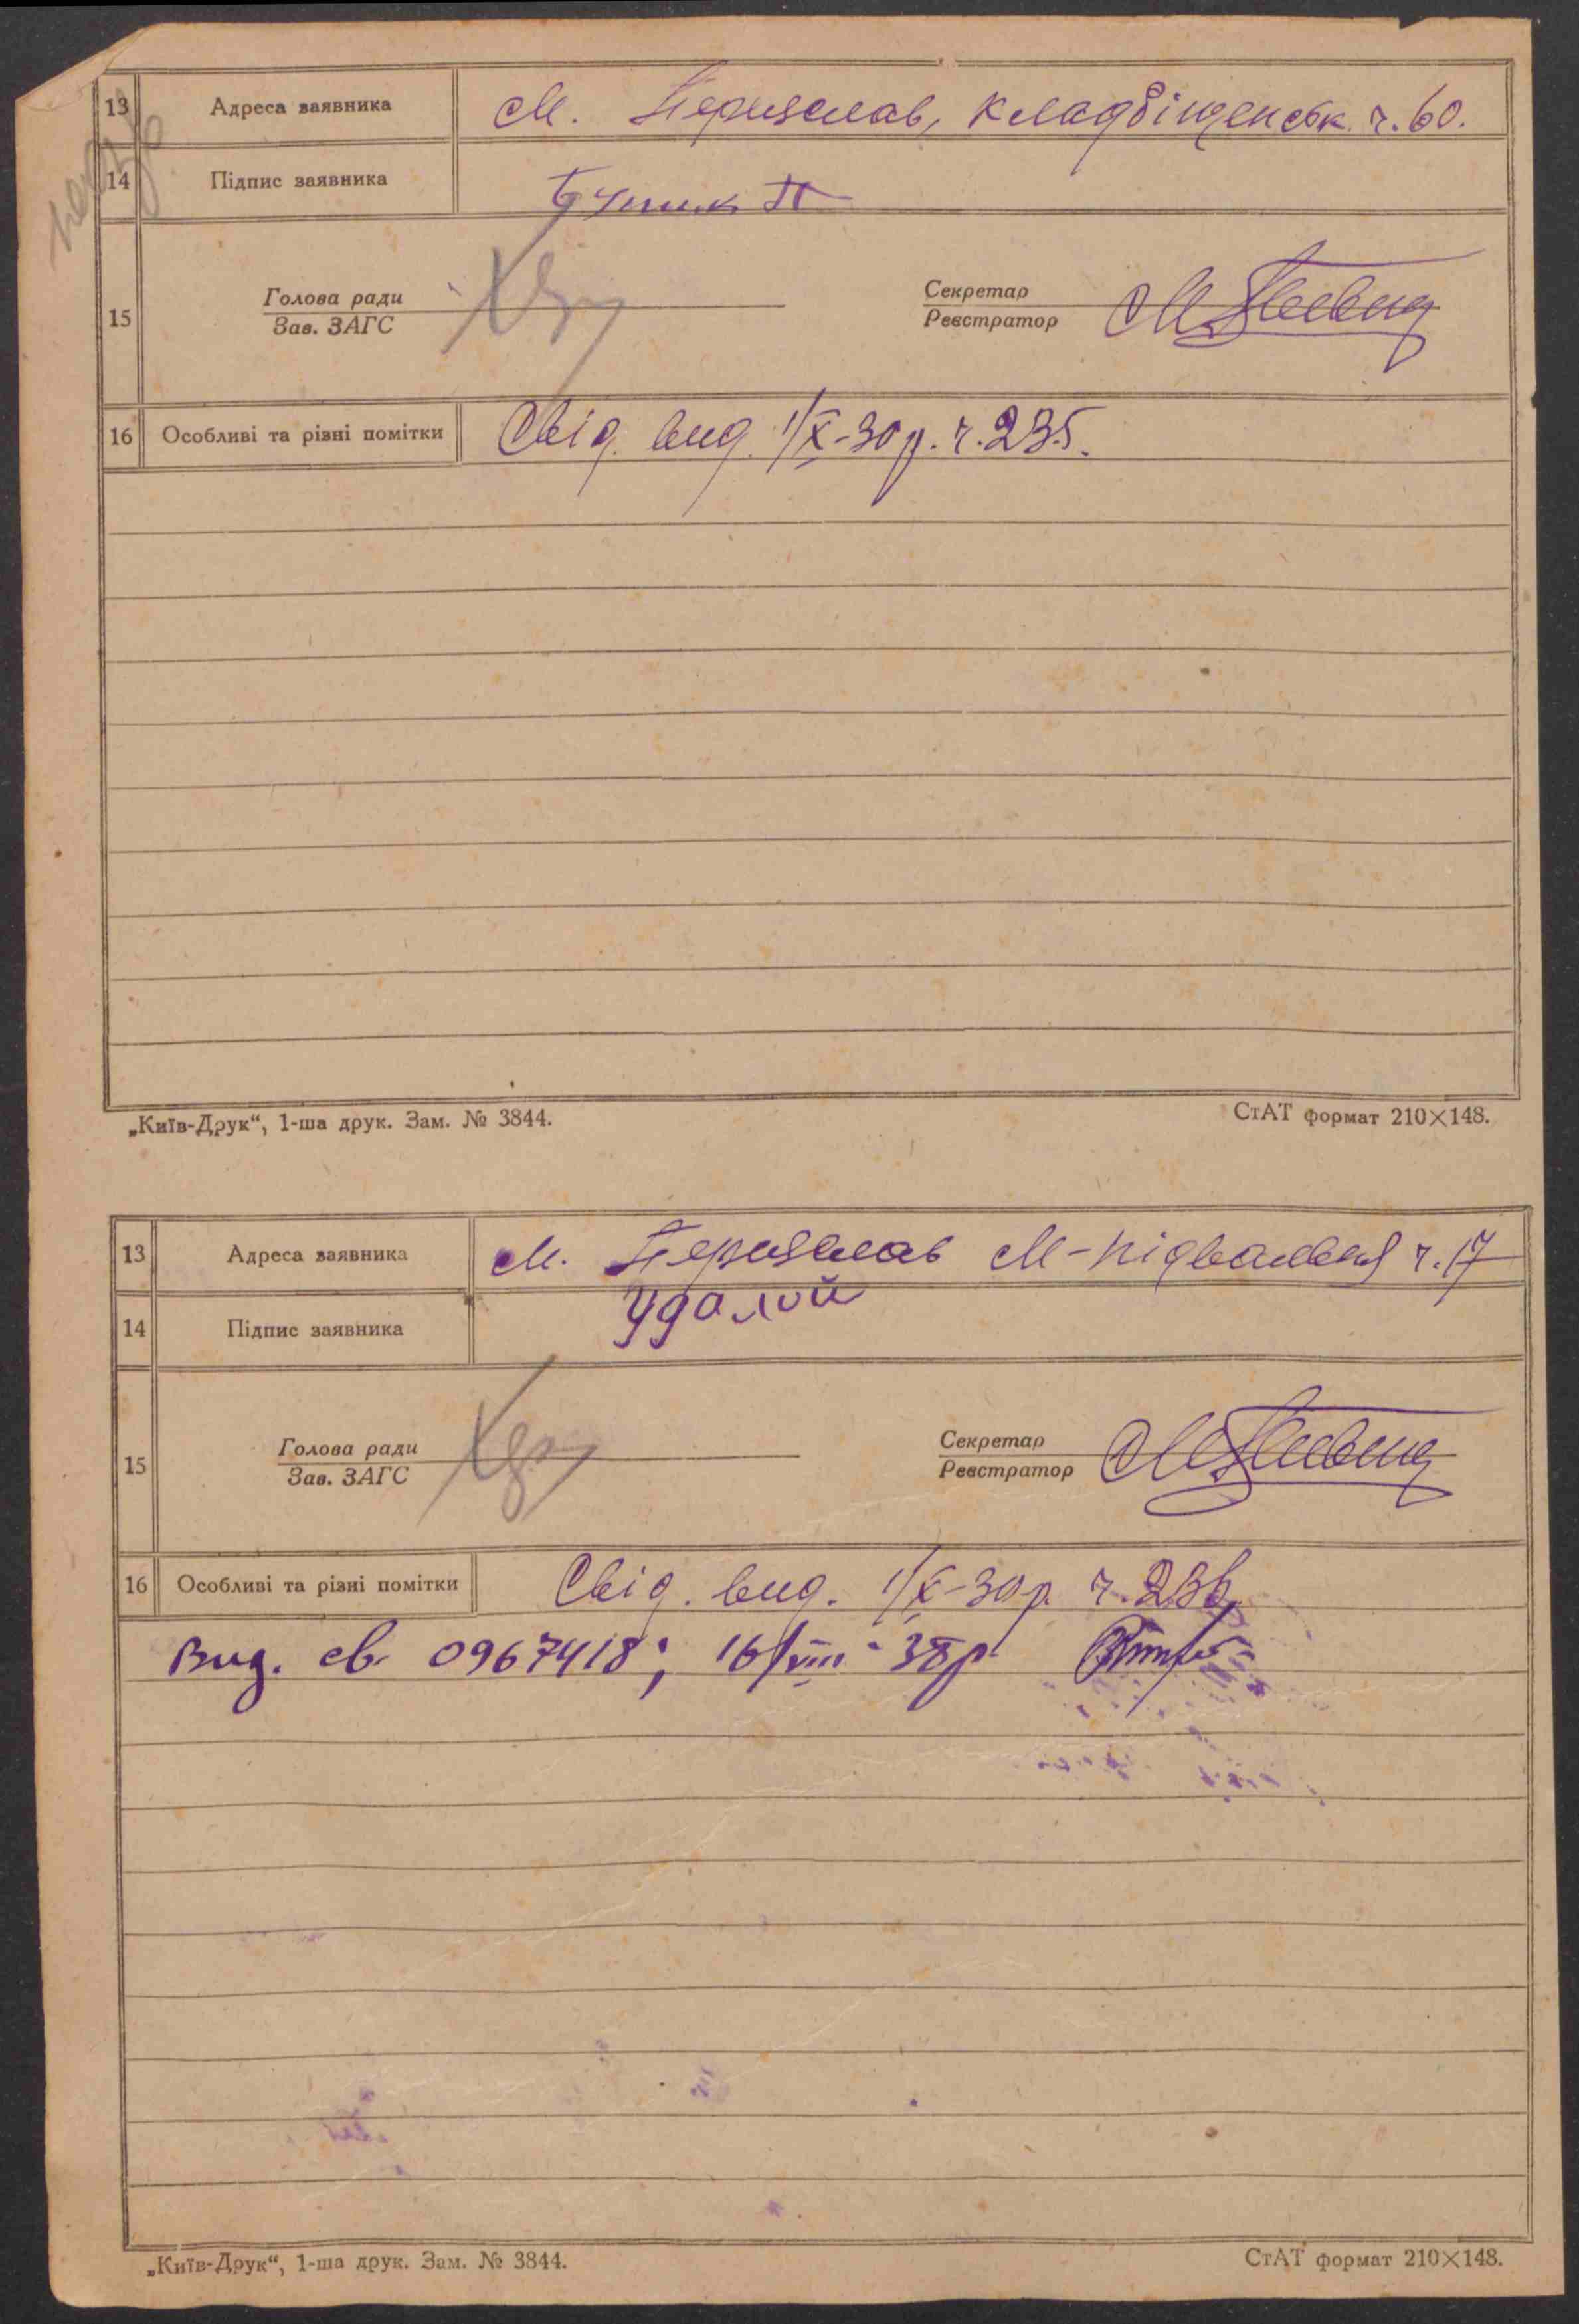 13 Адреса заявника м. Переяслав, Кладбіщенськ. ч. 60.
14 Підпис заявника
15 Голова ради
Зав. ЗАГС
Секретар
Реєстратор
16 Особливі та різні помітки Свід. вид. 1/X-30 р. ч. 235.
„Київ-Друк“, 1-ша друк. Зам. № 3844. СтАТ формат 210×148.
13 Адреса заявника м. Переяслав М-підвальная ч. 17
14 Підпис заявника Удалой
15 Голова ради
Зав. ЗАГС
Секретар
Реєстратор
16 Особливі та різні помітки Свід. вид. 1/X-30 р. ч. 236.
Вид. св. 0967418; 16/VIII-38 р
„Київ-Друк“, 1-ша друк. Зам. № 3844. СтАТ формат 210×148.